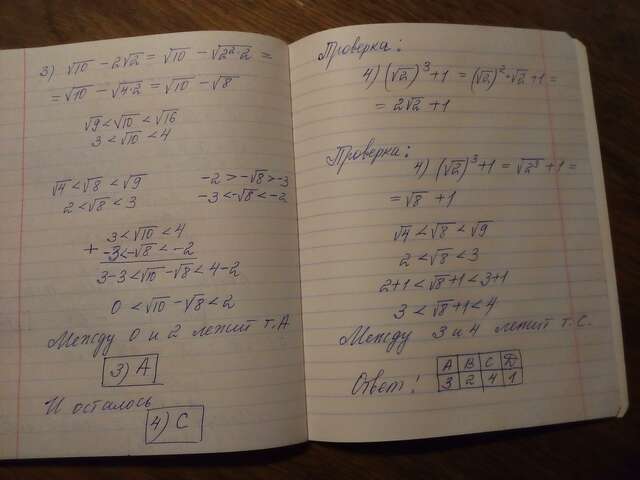 3) √10 − 2√2 = √10 − √2²·2 =
= √10 − √4·2 = √10 − √8
√9 < √10 < √16
3 < √10 < 4
√4 < √8 < √9 −2 > −√8 > −3
2 < √8 < 3 −3 < −√8 < −2
3 < √10 < 4
+ −3 < −√8 < −2
3−3 < √10 − √8 < 4−2
0 < √10 − √8 < 2
Между 0 и 2 лежит т. А
3) А
И осталось
4) С
Проверка:
4) (√2)³ + 1 = (√2)²·√2 + 1 =
= 2√2 + 1
Проверка:
4) (√2)³ + 1 = √2³ + 1 =
= √8 + 1
√4 < √8 < √9
2 < √8 < 3
2+1 < √8+1 < 3+1
3 < √8+1 < 4
Между 3 и 4 лежит т. С.
Ответ:
А В С Д
3 2 4 1